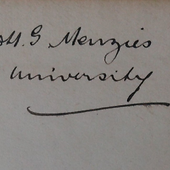 G Menzies
University